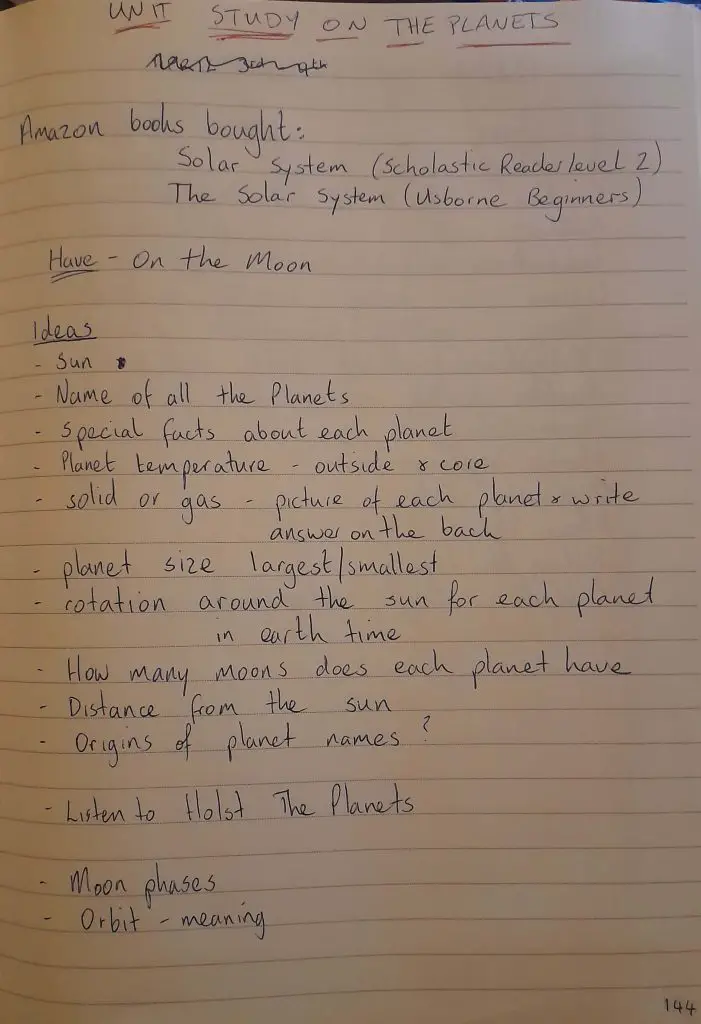 UNIT STUDY ON THE PLANETS
Amazon books bought:
Solar System (Scholastic Reader level 2)
The Solar System (Usborne Beginners)
Have - On the Moon
Ideas
- Sun
- Name of all the Planets
- Special facts about each planet
- Planet temperature - outside & core
- solid or gas - picture of each planet & write
answer on the back
- planet size largest/smallest
- rotation around the sun for each planet
in earth time
- How many moons does each planet have
- Distance from the sun
- Origins of planet names ?
- Listen to Holst The Planets
- Moon phases
- Orbit - meaning
144